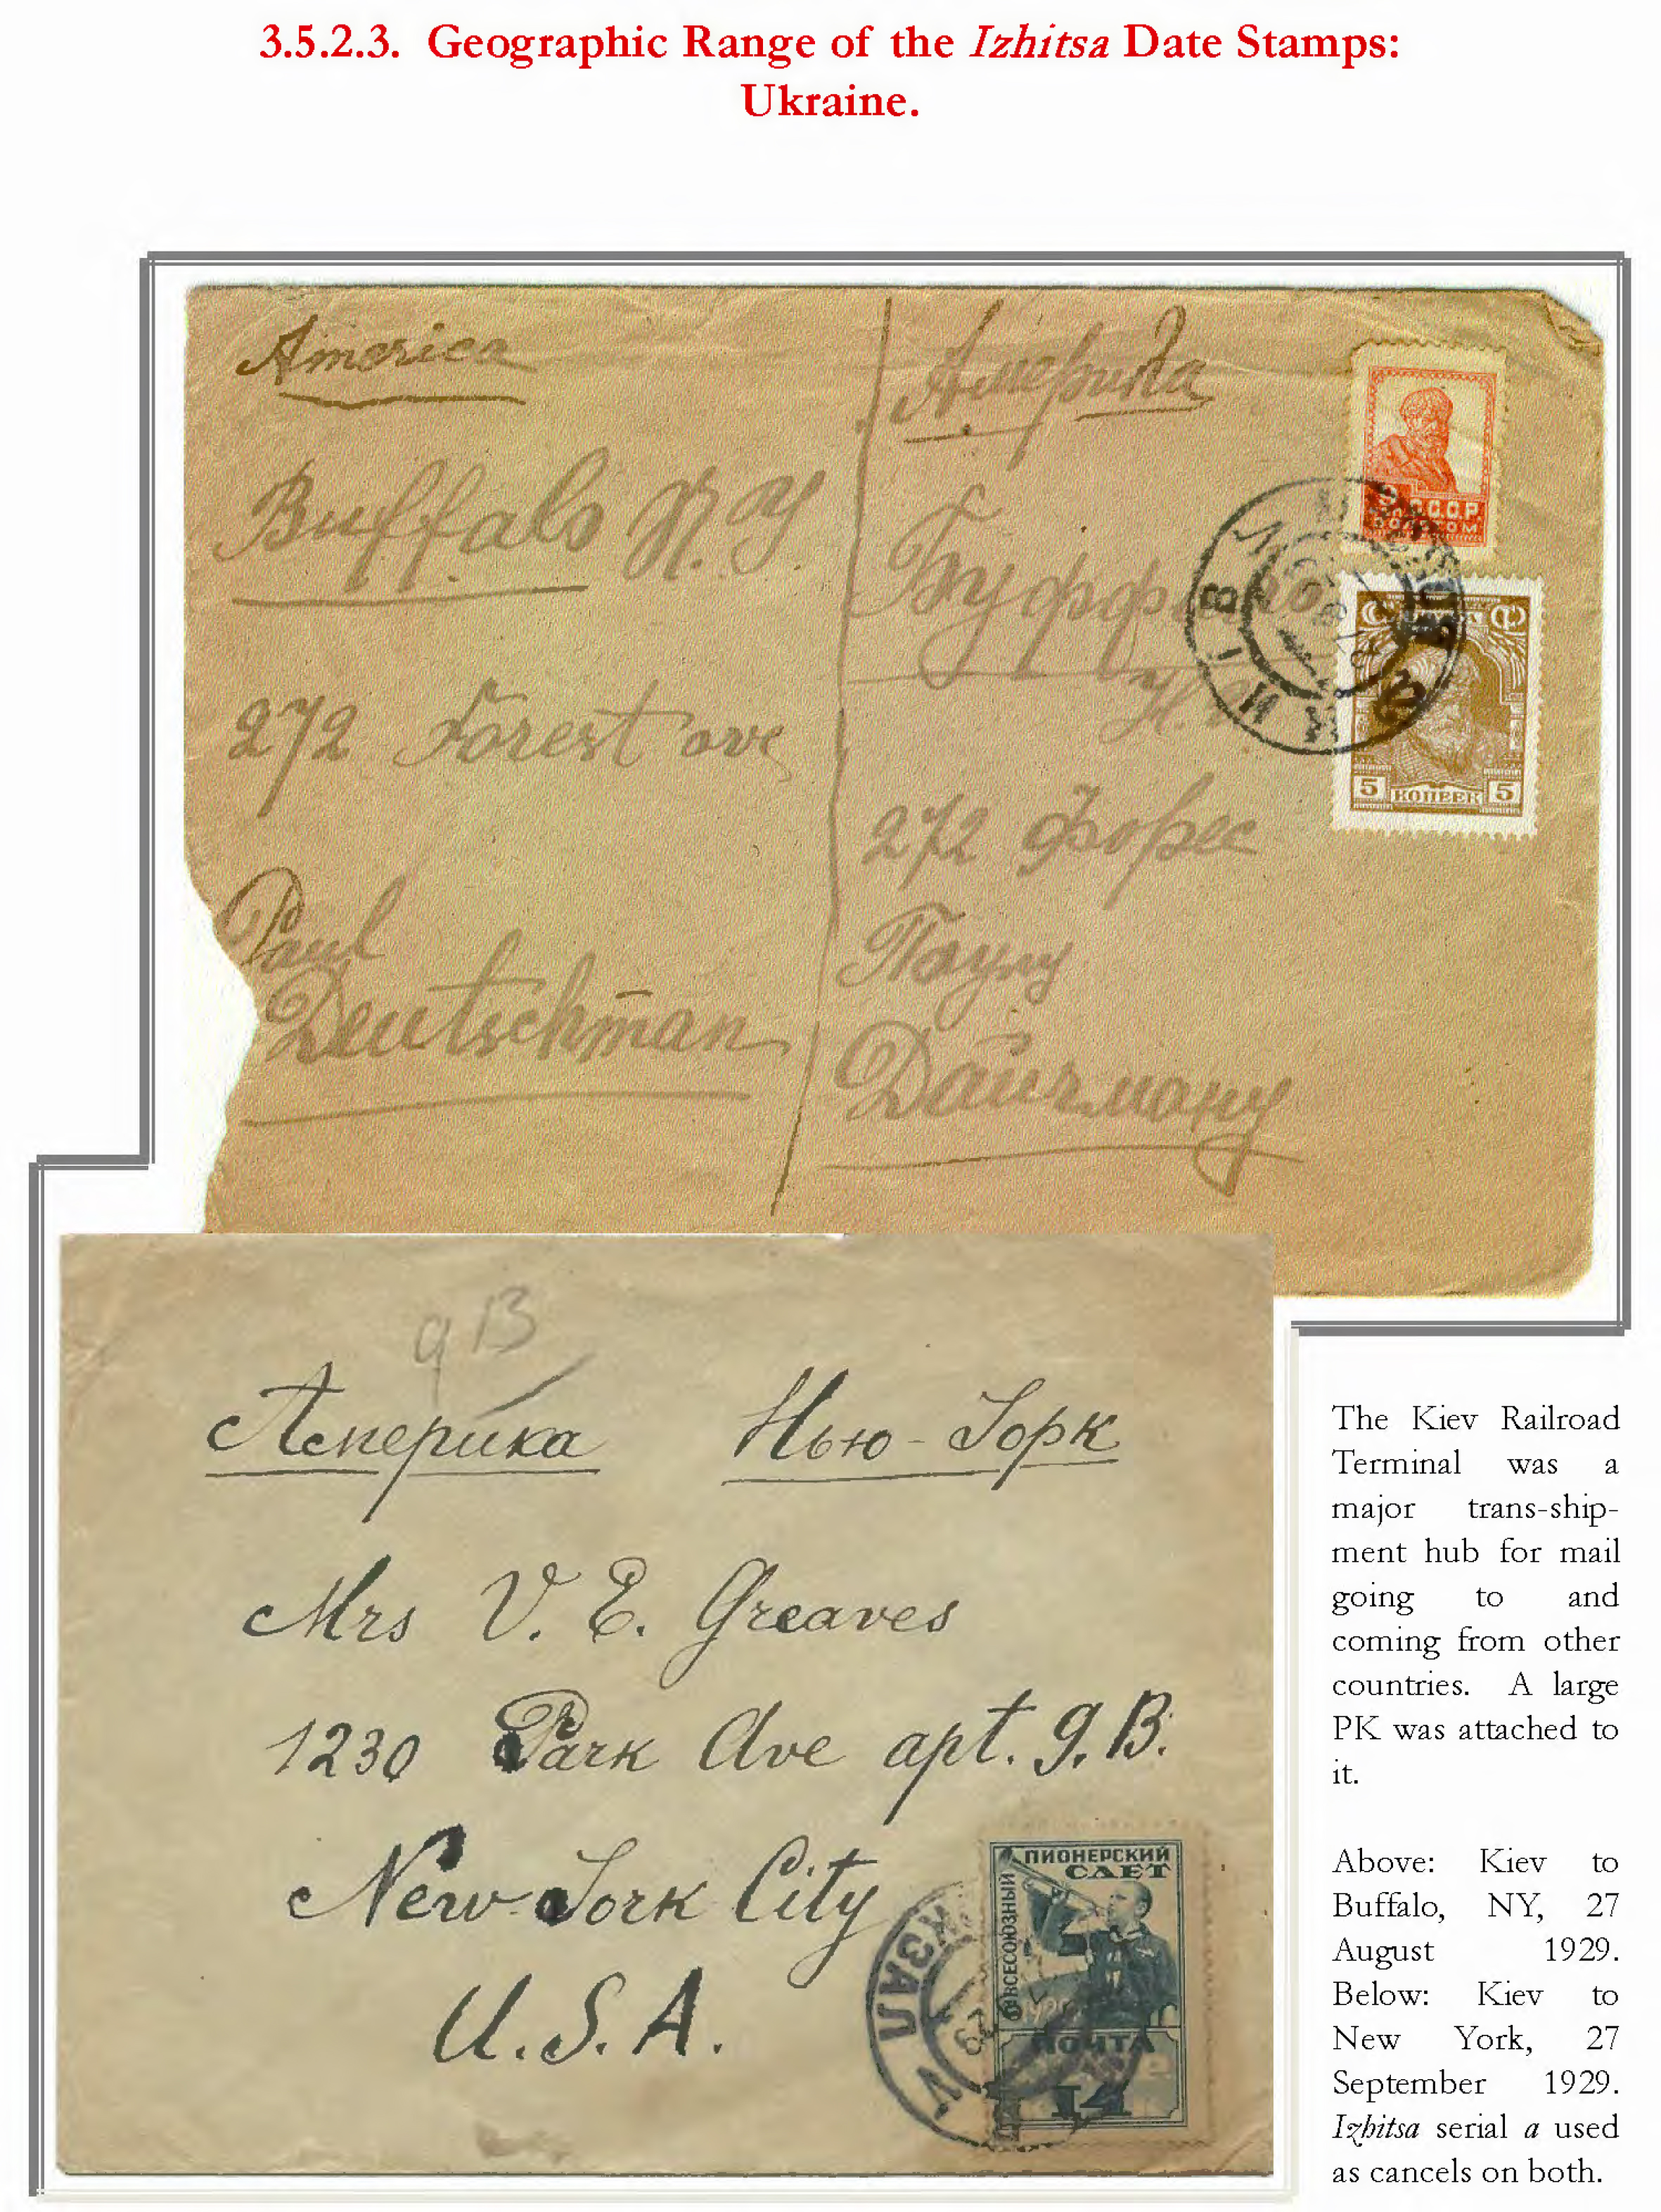 3.5.2.3. Geographic Range of the Izhitsa Date Stamps:
Ukraine.
America
Buffalo N.Y.
272 Forest ave
Paul
Deutschman
Америка
272 Форес
Паулу
Дайчману
С.С.С.Р.
5 КОПЕЕК 5
КИЇВ
913
Америка Нью-Йорк
Mrs V. E. Greaves
1230 Park Ave apt. 9.B.
New York City
U.S.A.
ПИОНЕРСКИЙ
СЛЕТ
ВСЕСОЮЗНЫЙ
ПОЧТА
14
The Kiev Railroad
Terminal was a
major trans-ship-
ment hub for mail
going to and
coming from other
countries. A large
PK was attached to
it.
Above: Kiev to
Buffalo, NY, 27
August 1929.
Below: Kiev to
New York, 27
September 1929.
Izhitsa serial a used
as cancels on both.